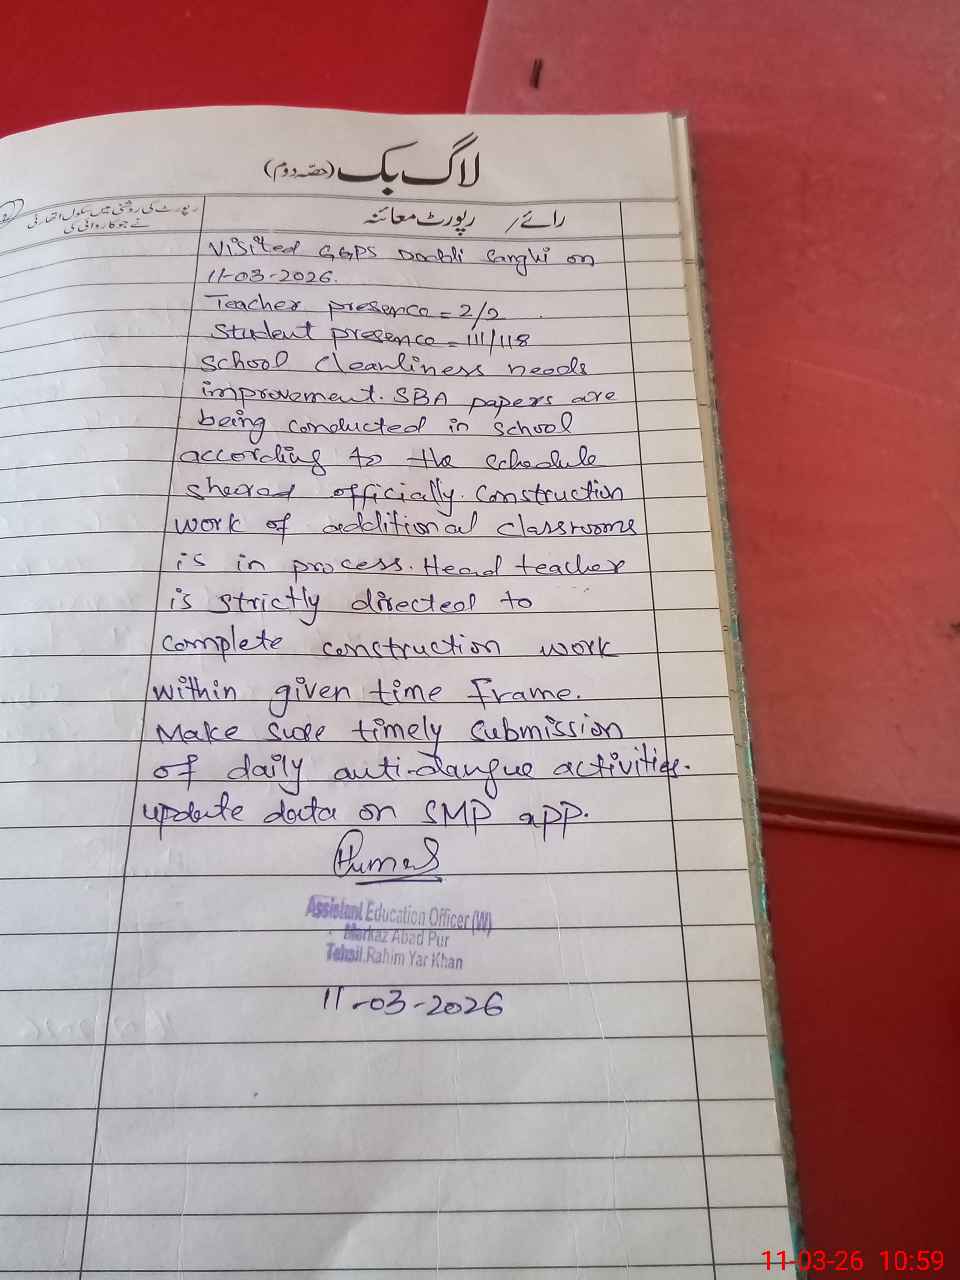 لاگ بک (حصہ دوم)
رپورٹ کی روشنی میں سکول اتھارٹی
نے جو کاروائی کی
رائے / رپورٹ معائنہ
Visited GGPS Doabli Sanghi on
11-03-2026.
Teacher presence = 2/2
Student presence = 111/118
School cleanliness needs
improvement. SBA papers are
being conducted in school
according to the schedule
sheared officially. Construction
work of additional classrooms
is in process. Head teacher
is strictly directed to
complete construction work
within given time frame.
Make sure timely submission
of daily anti-dangue activities.
update data on SMP app.
Assistant Education Officer (W)
Markaz Abad Pur
Tehsil Rahim Yar Khan
11-03-2026
11-03-26 10:59